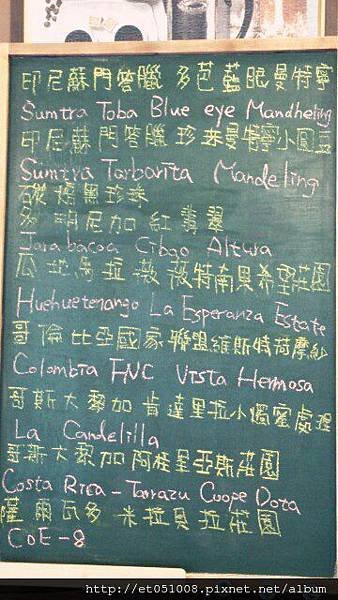 印尼蘇門答臘 多芭藍眼曼特寧
Sumtra Toba Blue eye Mandheling
印尼蘇門答臘珍珠曼特寧小圓豆
Sumtra Tarbarita Mandeling
碳燒黑珍珠
多明尼加紅翡翠
Jarabacoa Cibao Altura
瓜地馬拉薇薇特南果希望莊園
Huehuetenango La Esperanza Estate
哥倫比亞國家聯盟維斯特荷摩紗
Colombia FNC Vista Hermosa
哥斯大黎加肯達里拉小燭蜜處理
La Candelilla
哥斯大黎加阿桂里亞斯莊園
Costa Rica - Tarrazu Coope Dota
薩爾瓦多米拉貝拉莊園
COE-8
http://et051008.pixnet.net/album